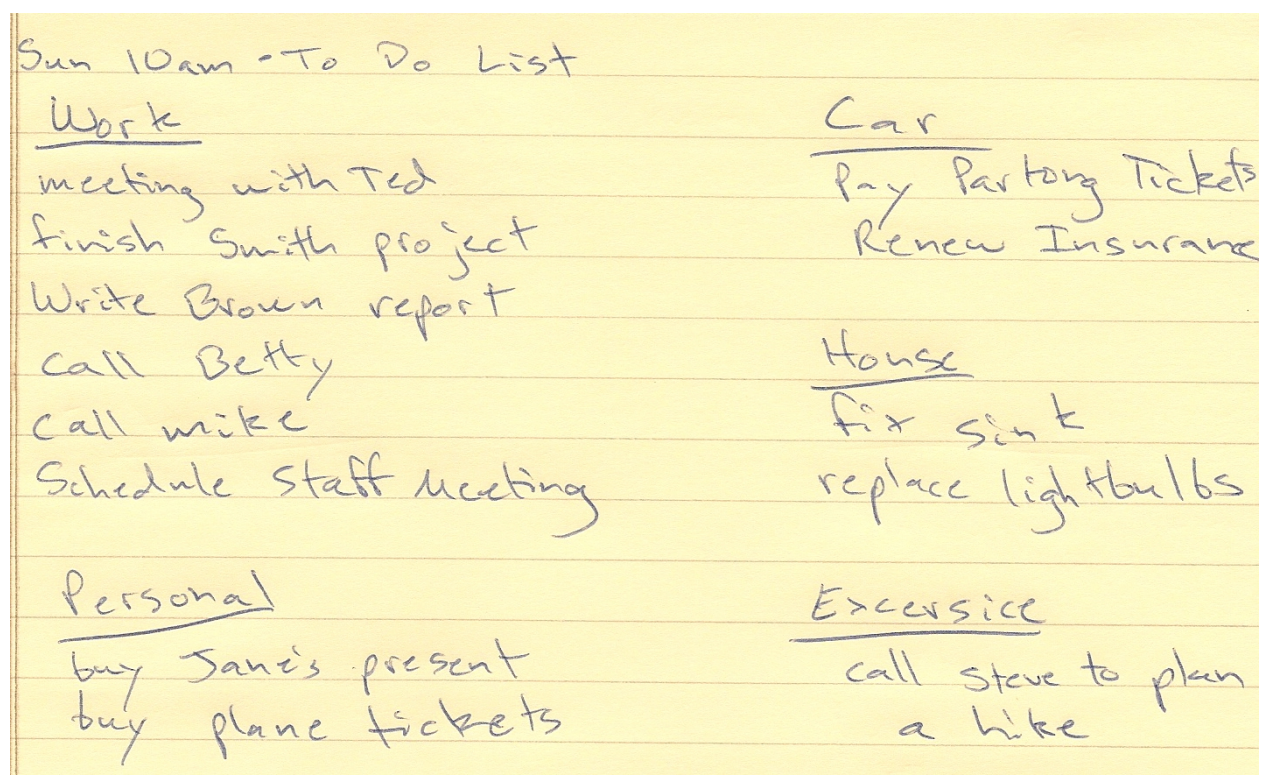 Sun 10am - To Do List
Work
meeting with Ted
finish Smith project
Write Brown report
call Betty
call mike
Schedule Staff Meeting
Personal
buy Jane's present
buy plane tickets
Car
Pay Parking Tickets
Renew Insurance
House
fix sink
replace lightbulbs
Excersice
call Steve to plan
a hike